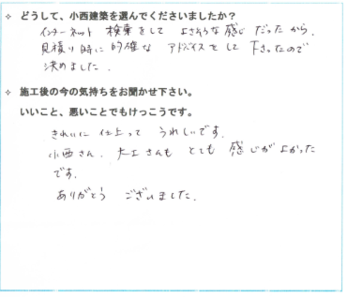 ✧ どうして、小西建築を選んでくださいましたか？
インターネット 検索をして よさそうな感じ だったから。
見積り時に的確な アドバイスをして下さったので
決めました。
✧ 施工後の今の気持ちをお聞かせ下さい。
いいこと、悪いことでもけっこうです。
きれいに仕上って うれしいです。
小西さん、大工さんも とても 感じがよかった
です。
ありがとう ございました。